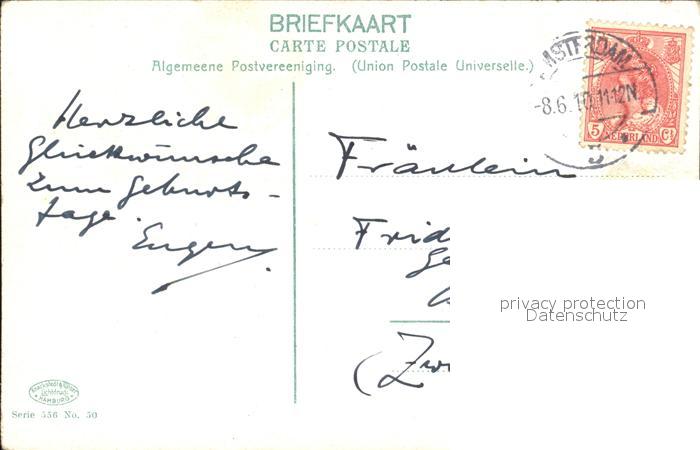 BRIEFKAART
CARTE POSTALE
Algemeene Postvereeniging. (Union Postale Universelle.)
AMSTERDAM
-8.6.10.11-12N
5
5 NEDERLAND Ct
Herzliche
Glückwünsche
zum Geburts-
tage.
Eugen
Fräulein
Frid
Ge
(Zw
privacy protection
Datenschutz
Knackstedt & Näther
Lichtdruck
HAMBURG
Serie 556 No. 50